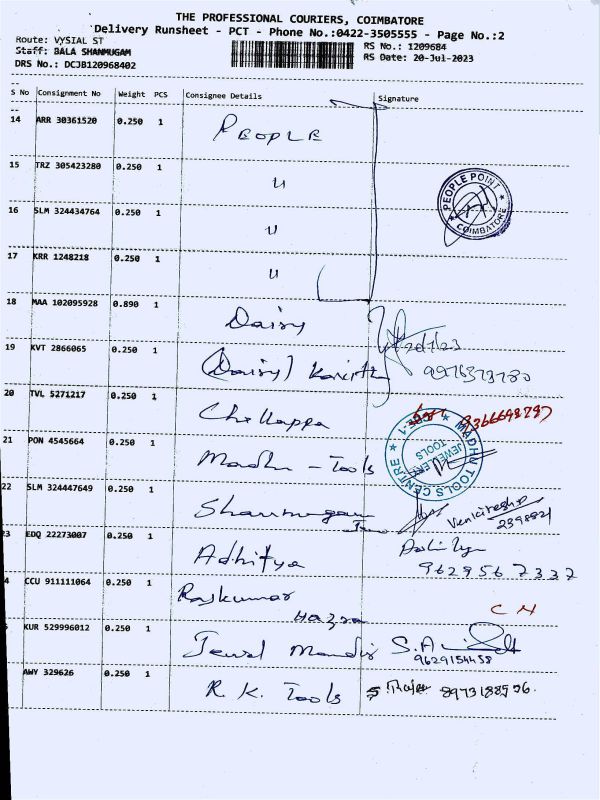 THE PROFESSIONAL COURIERS, COIMBATORE
Delivery Runsheet - PCT - Phone No.:0422-3505555 - Page No.:2
Route: VYSIAL ST
Staff: BALA SHANMUGAM
DRS No.: DCJB120968402
RS No.: 1209684
RS Date: 20-Jul-2023
S No Consignment No Weight PCS Consignee Details Signature
14 ARR 30361520 0.250 1 PEOPLE
15 TRZ 305423280 0.250 1 u
PEOPLE POINT
COIMBATORE
16 SLM 324434764 0.250 1 u
17 KRR 1248218 0.250 1 u
18 MAA 102095928 0.890 1 Daisy
19 KVT 2866065 0.250 1 (Daisy)
20 TVL 5271217 0.250 1 Chellappa
21 PON 4545664 0.250 1 Madhu - Tools
MADHU TOOLS CENTRE
JEWELLERY TOOLS
22 SLM 324447649 0.250 1 Shanmugam
23 EDQ 22273007 0.250 1 Adhitya
9629567337
4 CCU 911111064 0.250 1 Rajkumar
Hazra
KUR 529996012 0.250 1 Jewel
9629154458
AWY 329626 0.250 1 R. K. Tools